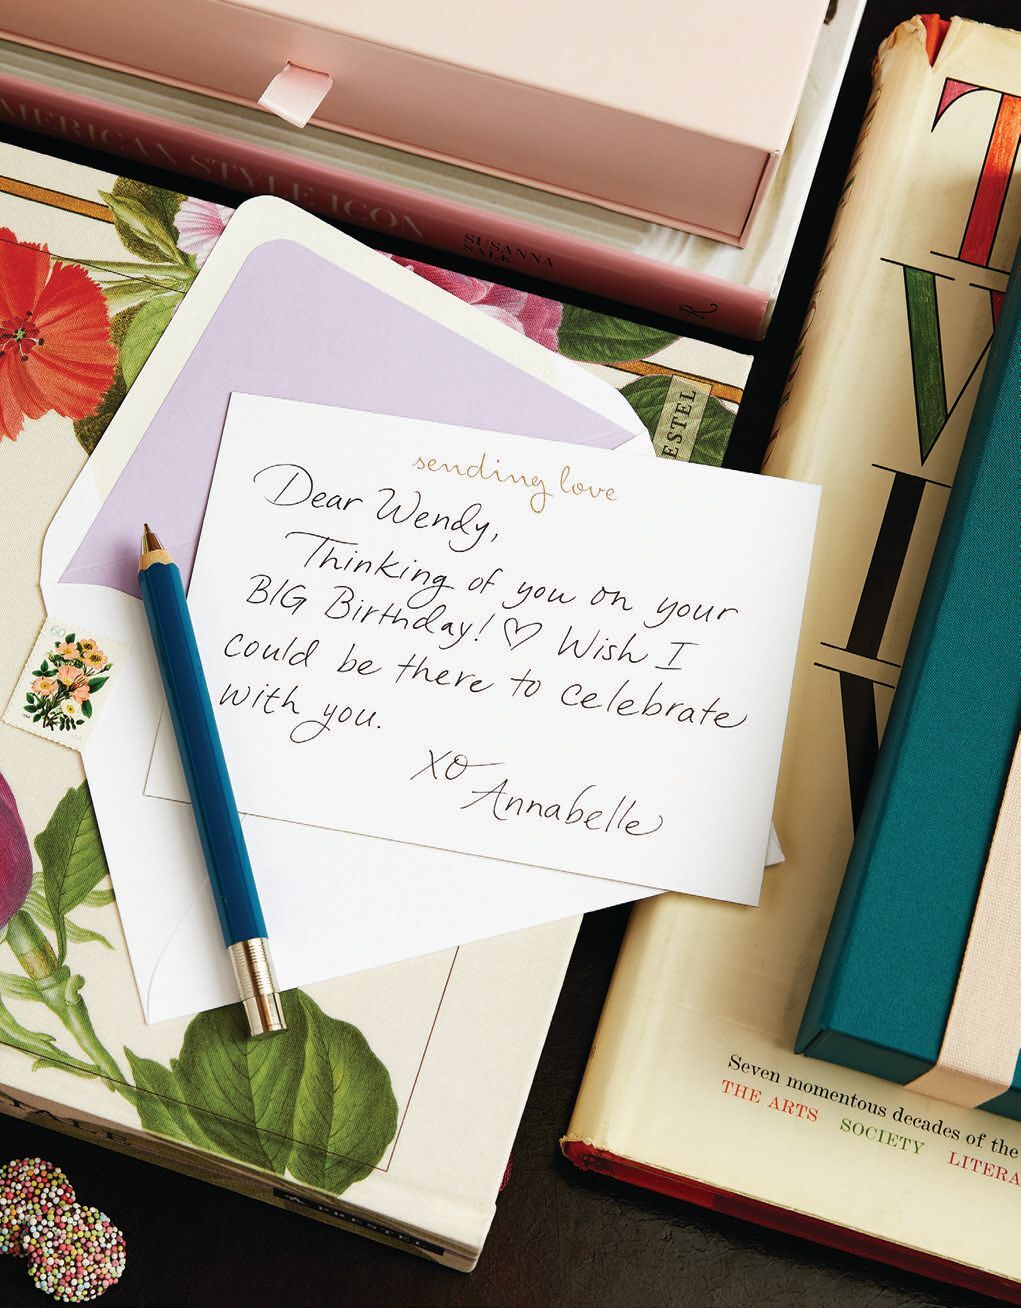 MERICAN STYLE ICON
SUSANNA
SALK
R
T
V
ESTEL
60c
sending love
Dear Wendy,
Thinking of you on your
BIG Birthday! ♡ Wish I
could be there to celebrate
with you.
xo
Annabelle
Seven momentous decades of the
THE ARTS SOCIETY LITERA
PRESTEL